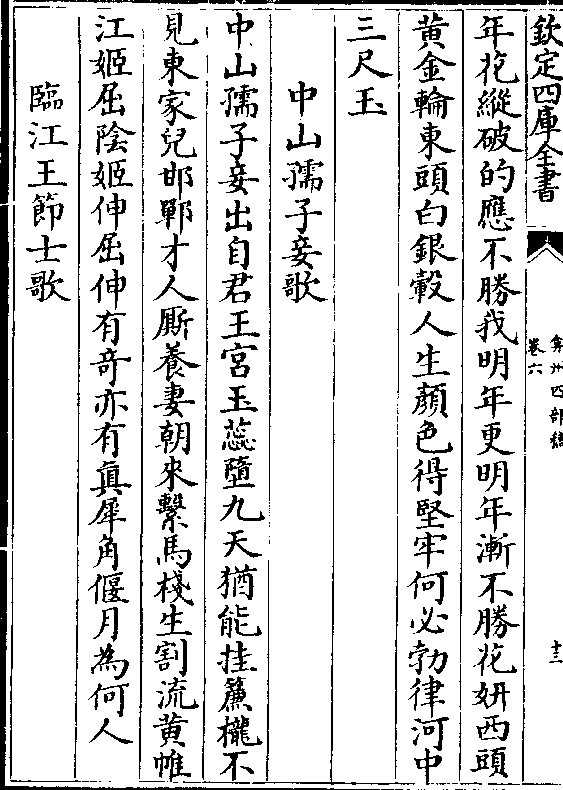 欽定四庫全書
弇州四部稿
卷六
十三
年花縱破的應不勝我明年更明年漸不勝花妍西頭
黃金輪東頭白銀轂人生顏色得堅牢何必勃律河中
三尺玉
中山孺子妾歌
中山孺子妾出自君王宮玉蕊墮九天猶能挂簾櫳不
見東家兒邯鄲才人厮養妻朝來繫馬棧生割流黃帷
江姬屈陰姬伸屈伸有奇亦有真犀角偃月為何人
臨江王節士歌